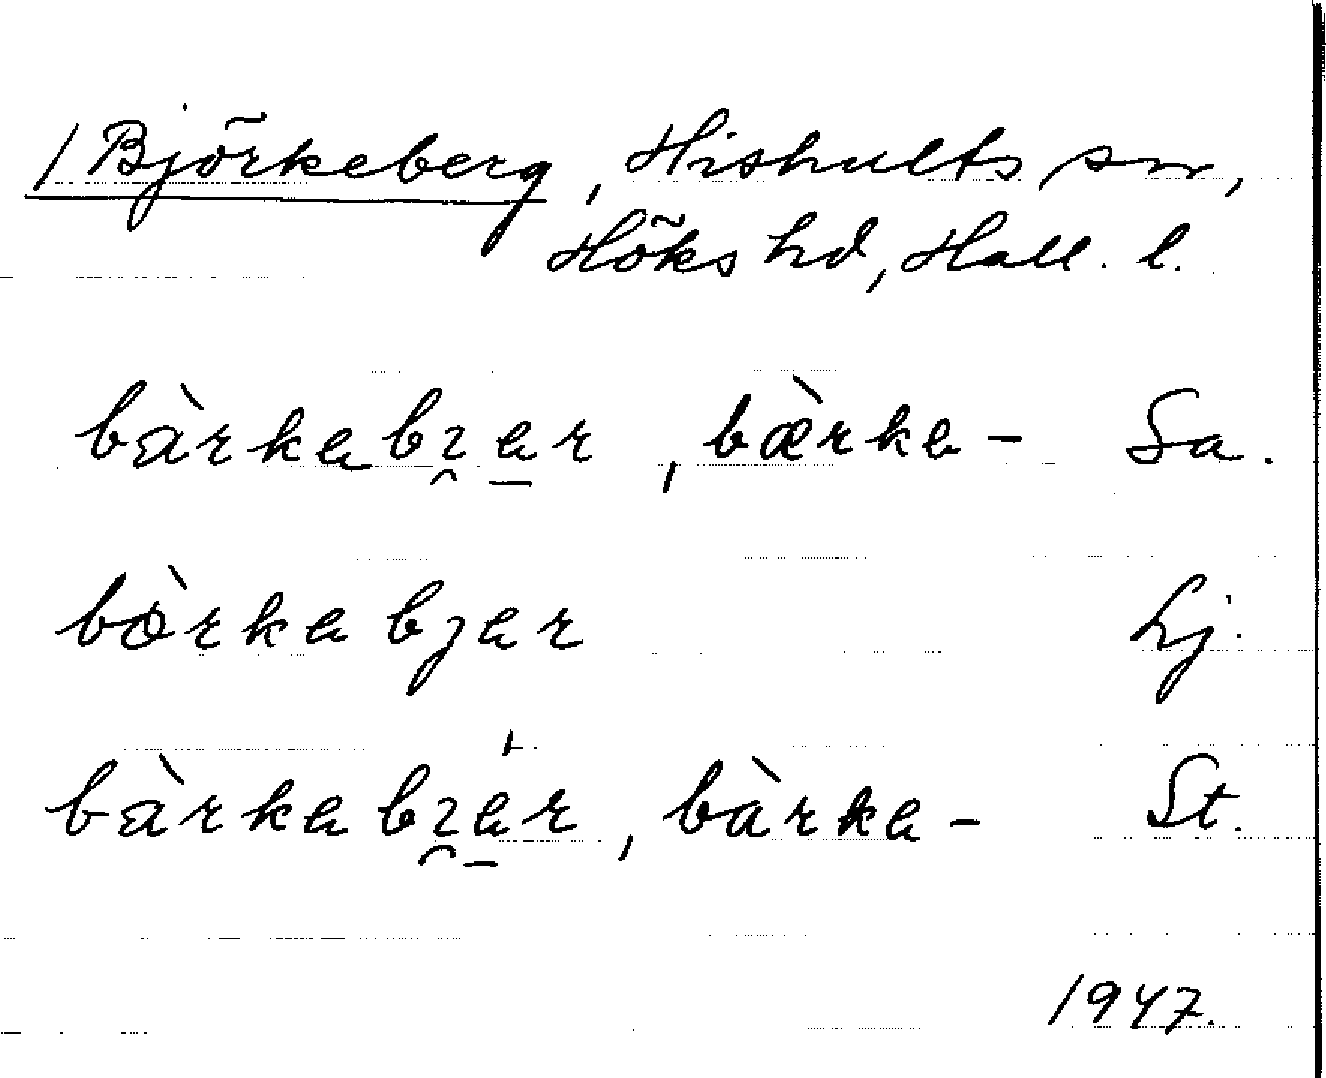 / Björkeberg, Hishults sn,
Höks hd, Hall. l.
bàrkabɿ̯a̠r, bæ̀rka- Sa.
bòrkabjar Lj.
bàrkabɿ̯a̠r, bàrka- St.
1947.